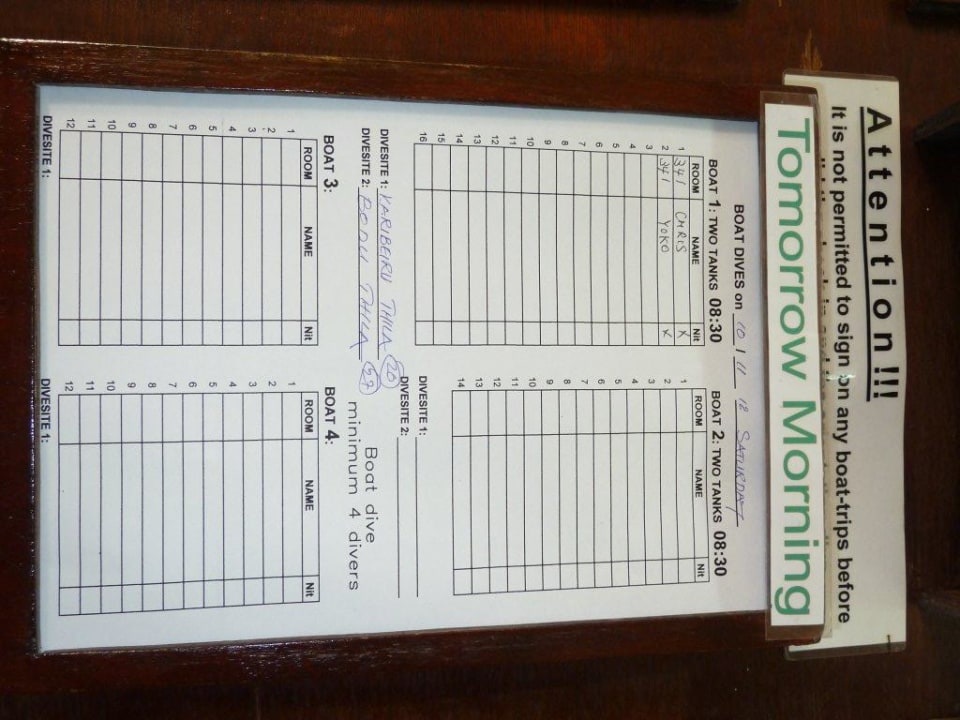 Attention!!!
It is not permitted to sign on any boat-trips before
Tomorrow Morning
BOAT DIVES on 10 / 11 18 SATURDAY
BOAT 1: TWO TANKS 08:30
ROOM NAME Nit
1 341 CHRIS X
2 341 YOKO X
3
4
5
6
7
8
9
10
11
12
13
14
15
16
DIVESITE 1: KARIBEIRU THILA 26
DIVESITE 2: BODU THILA 27
BOAT 2: TWO TANKS 08:30
ROOM NAME Nit
1
2
3
4
5
6
7
8
9
10
11
12
13
14
DIVESITE 1:
DIVESITE 2:
Boat dive
minimum 4 divers
BOAT 3:
ROOM NAME Nit
1
2
3
4
5
6
7
8
9
10
11
12
DIVESITE 1:
BOAT 4:
ROOM NAME Nit
1
2
3
4
5
6
7
8
9
10
11
12
DIVESITE 1: